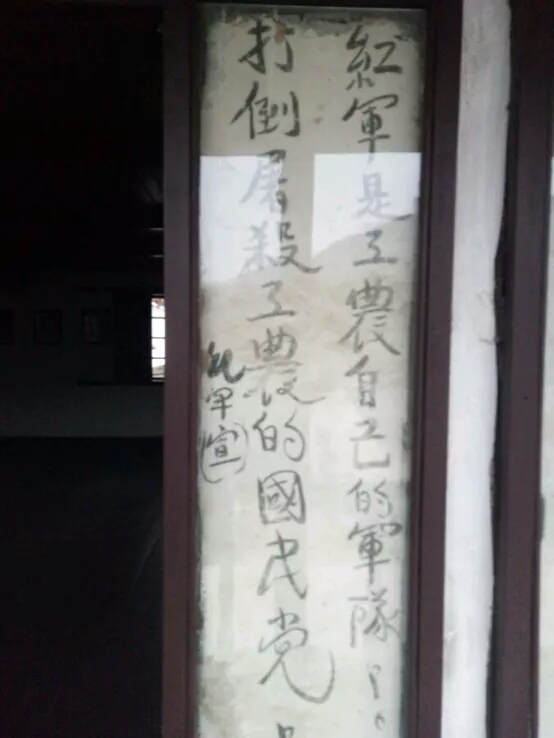 紅軍是工農自己的軍隊！
打倒屠殺工農的國民党！
紅军(宣)